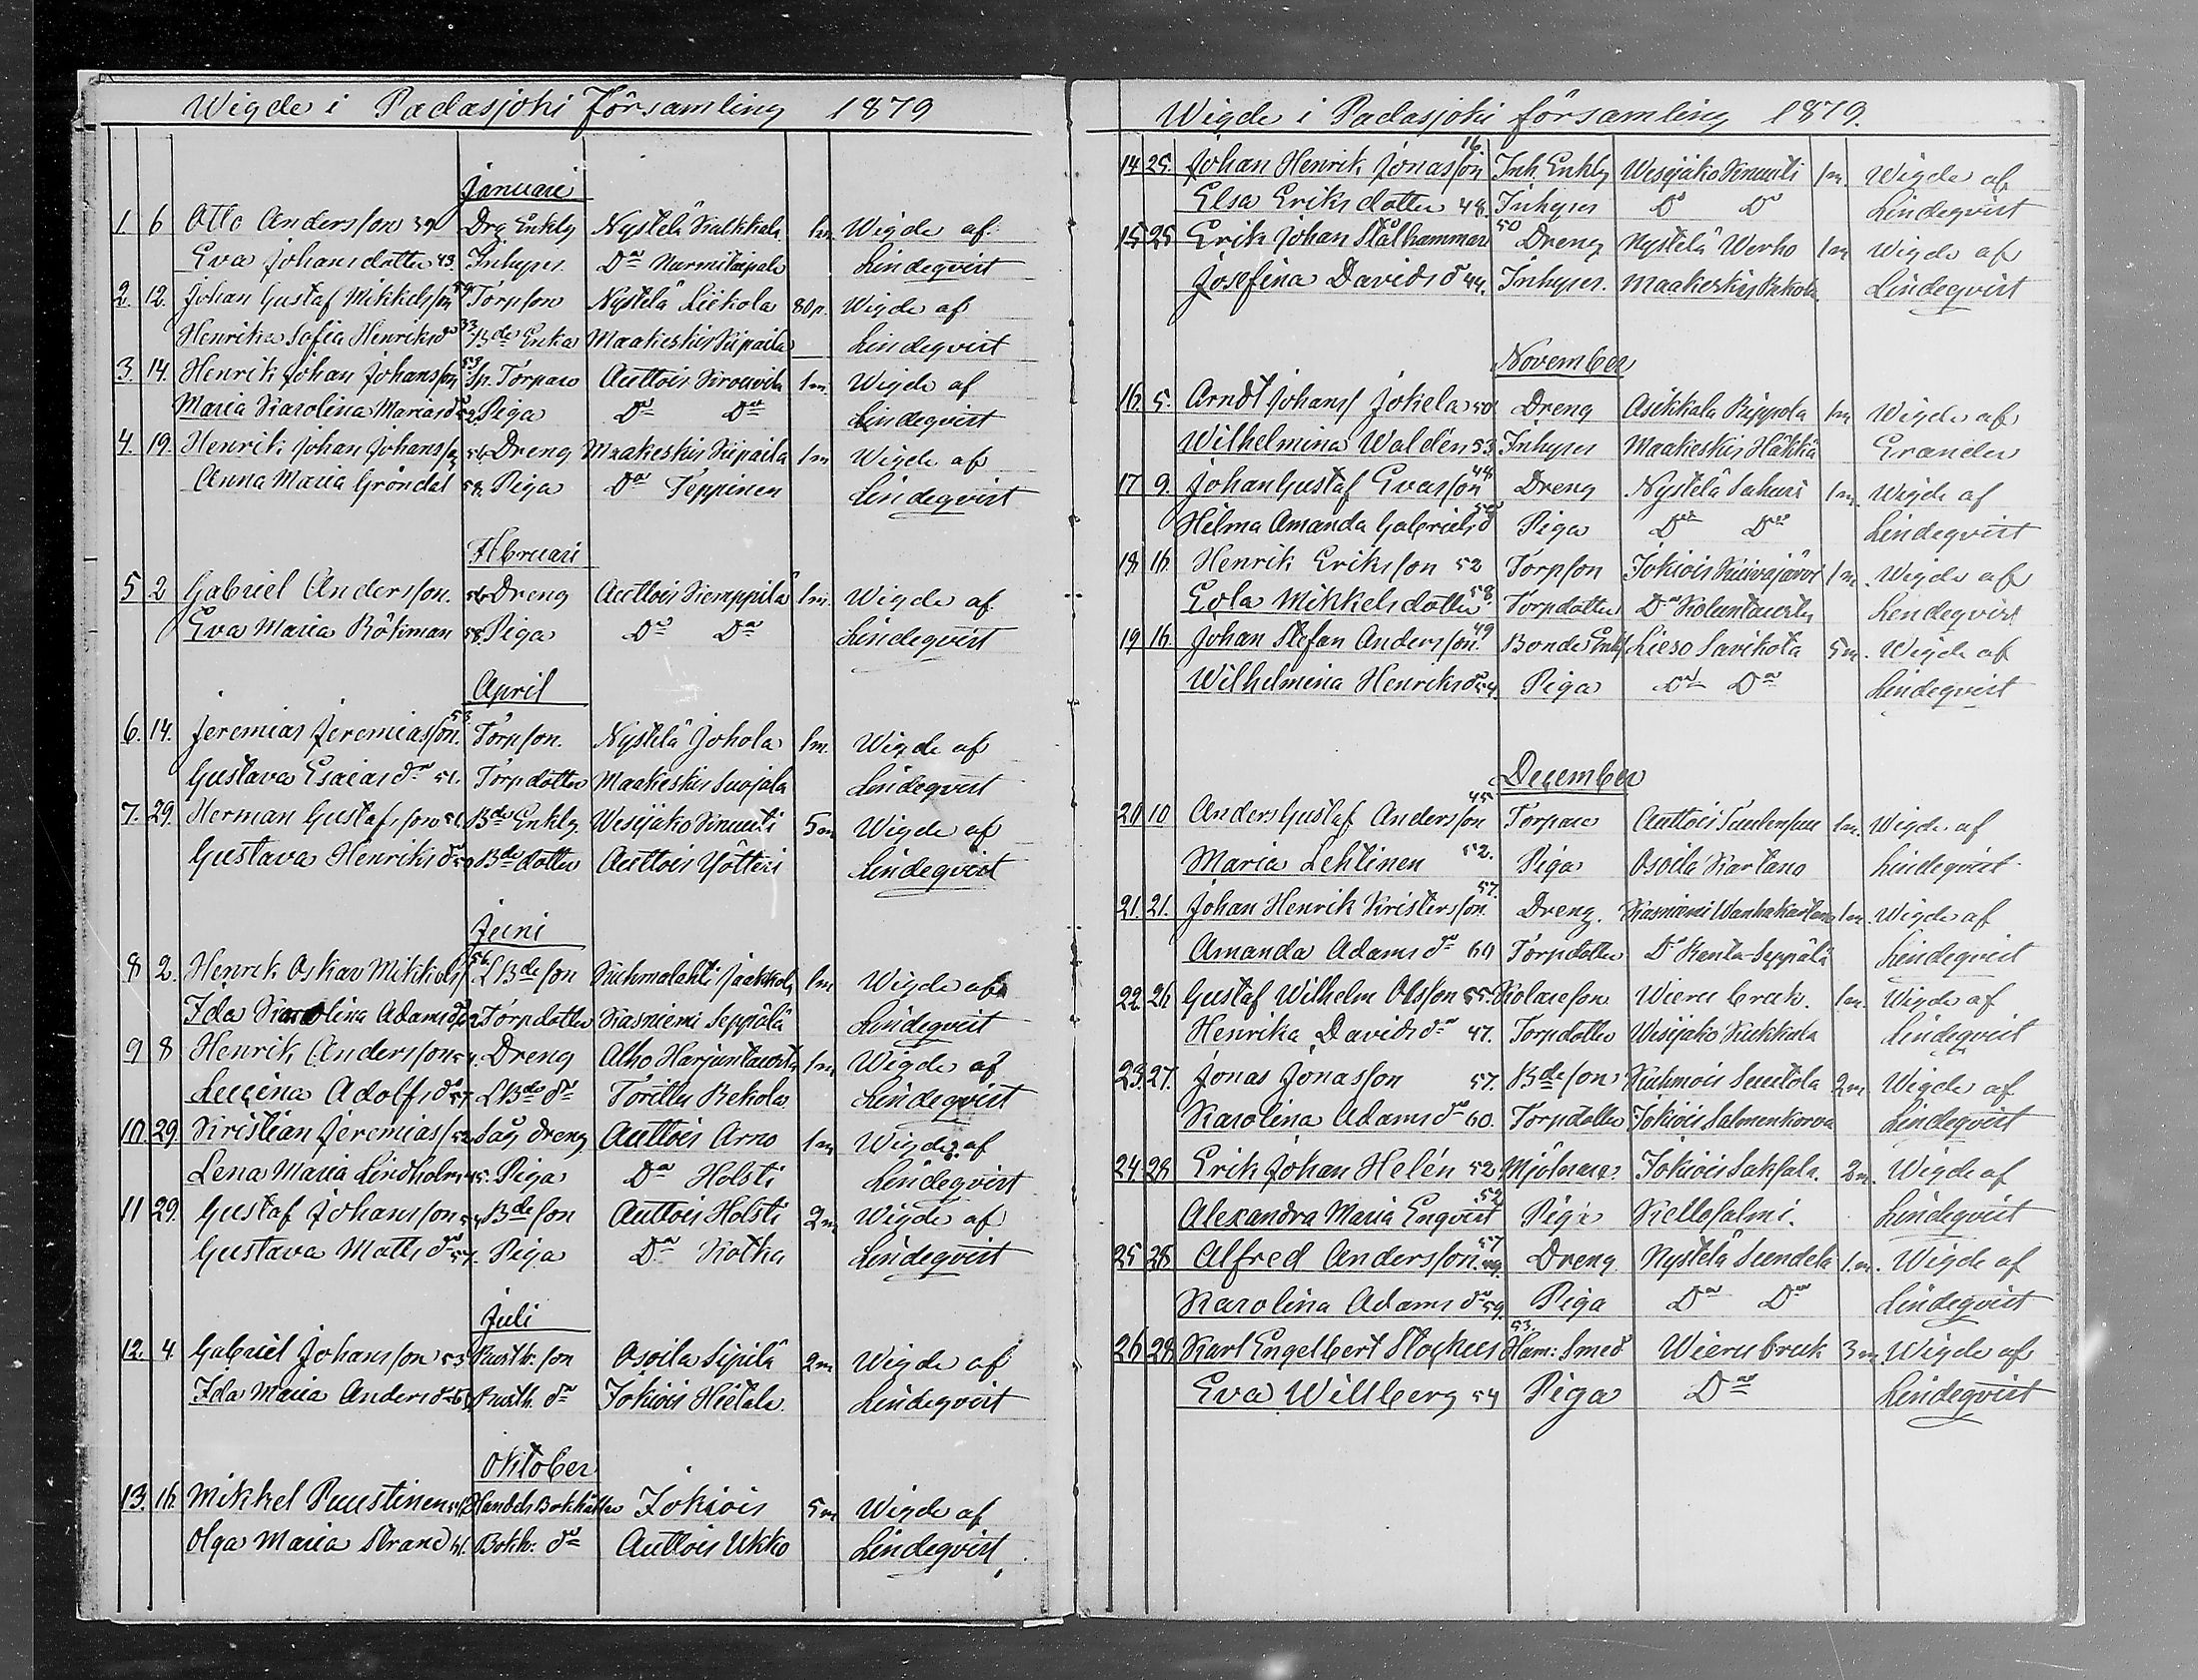 Wigde i Padasjoki Församling 1879
Januari
1 6 Otto Andersson 39 Drg Enklg Nystelä Kukkala 1m. Wigde af
Eva Johansdotter 43. Inhyses Do Nurmitaipale Lindeqvist
2. 12. Johan Gustaf Mikkelsson 59 Torpson Nystelä Liekola 80p. Wigde af
Henrika Sofia Henriksdr 33 Bde Enka Maakeskis Kipaila Lindeqvist
3. 14. Henrik Johan Johansson 53 Sp. Torpare Auttois 1m. Wigde af
Maria Karolina Mariasdr 52 Piga Do Do Lindeqvist
4. 19. Henrik Johan Johansson 56 Dreng Maakeskis Kipaila 1m Wigde af
Anna Maria Gröndal 58. Piga Do Teppinen Lindeqvist
Februari
5 2 Gabriel Andersson. 56 Dreng Auttois Kemppilä 1m. Wigde af
Eva Maria Bökman 58. Piga Do Do Lindeqvist
April
6. 14. Jeremias Jeremiasson. 53. Torpson. Nystelä Johola 1m. Wigde af
Gustava Esaiasdr 51. Torpdotter Maakeskis Suojala Lindeqvist
7. 29. Herman Gustafsson 51. Bde Enklg. Wesijako Kinuuti 5m Wigde af
Gustava Henriksdr 50 Bde dotter Auttois Yötteri Lindeqvist
Juni
8 2. Henrik Oskar Mikkelss. 56. L Bde son Kuhmolahti Jaakkola 1m Wigde af
Ida Karolina Adamsdr Torpdotter Kasniemi Seppälä Lindeqvist
9 8 Henrik Andersson 54. Dreng Alho Harjuntausta 1m Wigde af
Lucina Adolfsdr 57. L Bde dr Torittu Rekola Lindeqvist
10 29 Kristian Jeremiass. 52. Såg dreng Auttois Arno 1m Wigde af
Lena Maria Lindholm 45. Piga Do Holsti Lindeqvist
11 29. Gustaf Johansson 54 Bde son Auttois Holsti 2m Wigde af
Gustava Mattsdr 57. Piga Do Kotka Lindeqvist
Juli
12. 4. Gabriel Johansson 53 Rusth. son Osoila Sipilä 2m Wigde af
Ida Maria Andersdr Rusth. dr Jokiois Hietala Lindeqvist
Oktober
13. 16. Mikkel Puustinen Handels Bokhållare Jokiois 5m Wigde af
Olga Maria Strand Bokh. dr Auttois Ukko Lindeqvist
Wigde i Padasjoki församling 1879.
14 25. Johan Henrik Jonasson 16. Inh. Enklg Wesijako Kinuuti 1m. Wigde af
Elsa Eriksdotter 48. Inhyses Do Do Lindeqvist
15 25 Erik Johan Stålhammar 50 Dreng Nystelä Werho 1m Wigde af
Josefina Davidsdr 44. Inhyses. Maakeskis Lindeqvist
November
16. 5. Arndt Johans. Jokela 50 Dreng Asikkala Reppola 1m Wigde af
Wilhelmina Waldén 53 Inhyses Maakeskis Häkkä Granden
17 9. Johan Gustaf Evasson 48. Dreng Nystelä Sakari 1m. Wigde af
Hilma Amanda Gabrielsdr Piga Do Do Lindeqvist
18 16. Henrik Eriksson 52 Torpson Jokiois Kuivajärvi 1m. Wigde af
Eola Mikkelsdotter 58. Torpdotter Do Koluntausta Lindeqvist
19 16. Johan Stefan Andersson. 49 Bonde Enkl. Lieso Savikota 5m. Wigde af
Wilhelmina Henriksdr 54. Piga Do Do Lindeqvist
December
20 10 Anders Gustaf Andersson 45 Torpare Auttois Tuulensuu 1m. Wigde af
Maria Lehtinen 52. Piga Osoila Kartano Lindeqvist
21. 21. Johan Henrik Kristersson. 57. Dreng. Kasniemi Wanhakartano 1m. Wigde af
Amanda Adamsdr 60 Torpdotter Do Ranta-Seppälä Lindeqvist
22. 26. Gustaf Wilhelm Olsson 55. Kolareson Wieru bruk. 1m. Wigde af
Henrika Davidsdr 47. Torpdotter Wesijako Kukkula Lindeqvist
23. 27. Jonas Jonasson 57. Bde son Kuhmois Suutola 2m Wigde af
Karolina Adamsdr 60. Torpdotter Jokiois Salmenkorva Lindeqvist
24 28 Erik Johan Helén 52 Mjölnare Jokiois Saksala. 2m. Wigde af
Alexandra Maria Enqvist 52 Piga Kellosalmi. Lindeqvist
25 28 Alfred Andersson. 57 Dreng Nystelä Seendelä 1.m. Wigde af
Karolina Adamsdr 59. Piga Do Do Lindeqvist
26 28 Karl Engelbert Stockus 53. Ham: Smed Wieru bruk 3m Wigde af
Eva Willberg 54 Piga Do Lindeqvist